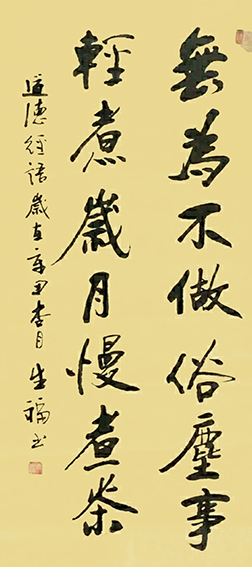 無為不做俗塵事
輕煮歲月慢煮茶
道德經語歲在辛丑杏月生福书